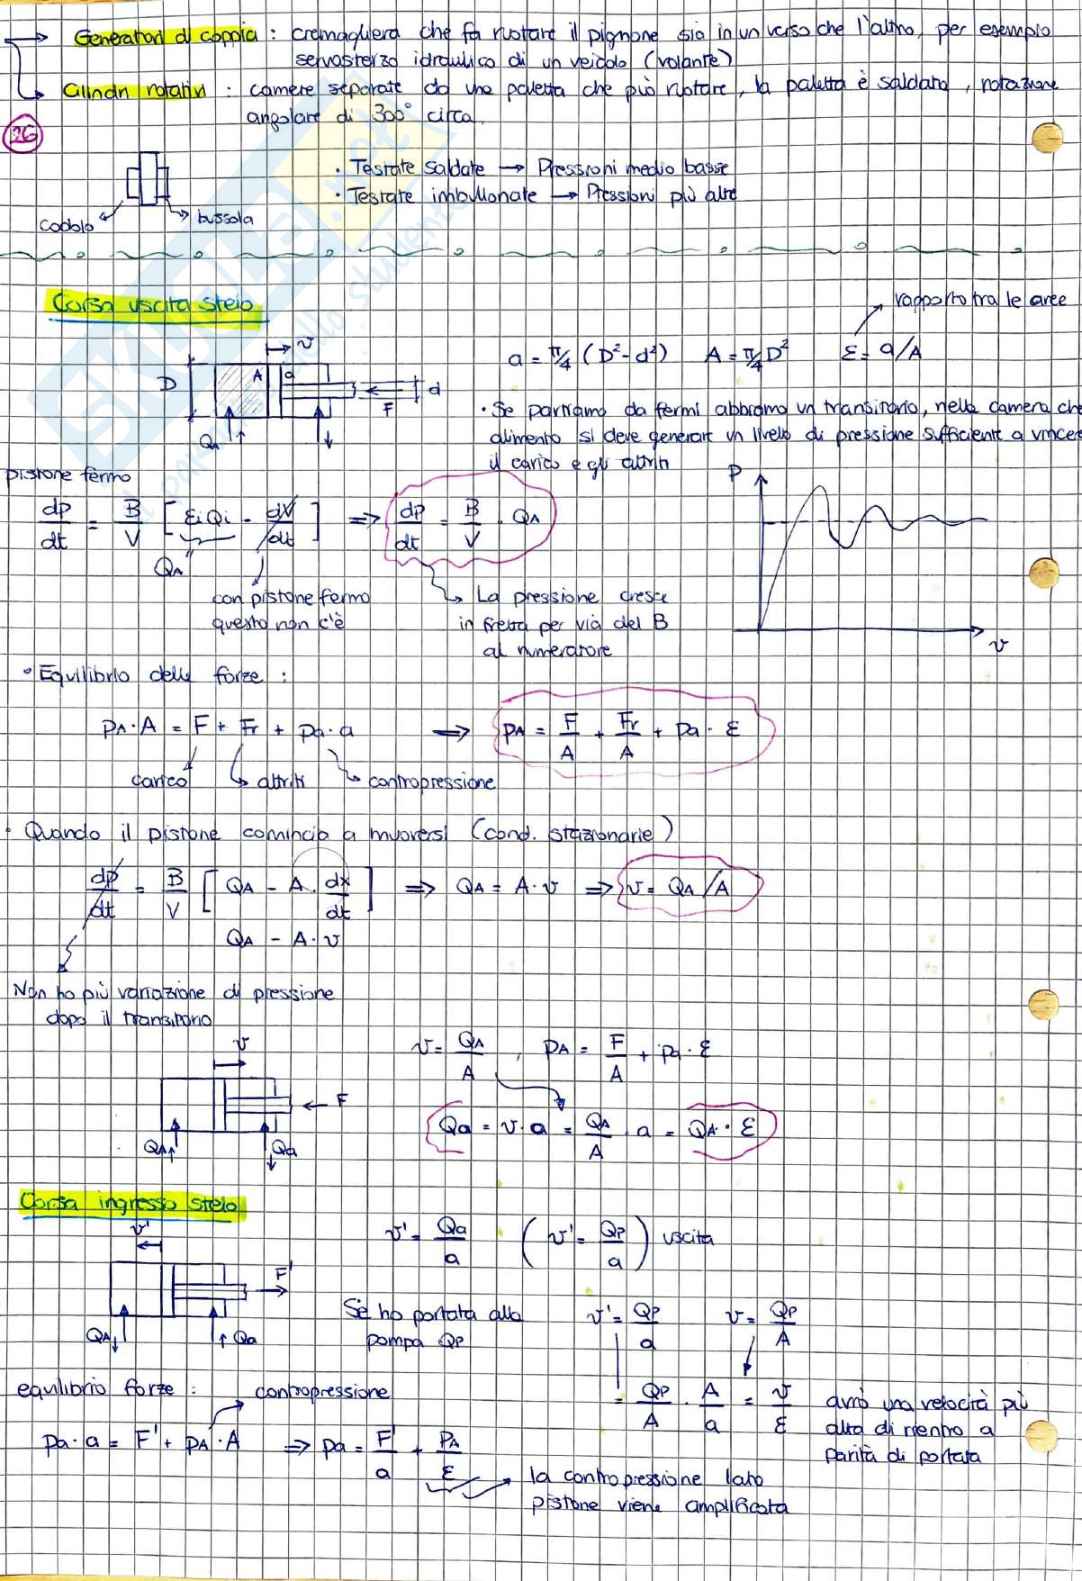 → Generatori di coppia : cremagliera che fa ruotare il pignone sia in un verso che l'altro, per esempio
servosterzo idraulico di un veicolo (volante)
Cilindri rotativi : camere separate da una paletta che può ruotare, la paletta è saldata, rotazione
angolare di 300° circa.
26
· Testate saldate → Pressioni medio basse
· Testate imbullonate → Pressioni più alte
codolo
bussola
Corsa uscita stelo
rapporto tra le aree
a = π/4 (D² - d²) A = π/4 D² ε = a/A
v
D A a d
F
QA
· Se partiamo da fermi abbiamo un transitorio, nella camera che
alimento si deve generare un livello di pressione sufficiente a vincere
il carico e gli attriti
pistone fermo
P
dp/dt = B/V [ΣiQi - dV/dt] ⇒ dp/dt = B/V · QA
QA
con pistone fermo
questo non c'è
↳ La pressione cresce
in fretta per via del B
al numeratore
v
· Equilibrio delle forze :
pA·A = F + Fr + pa·a ⇒ pA = F/A + Fr/A + pa · ε
carico ↳ attriti ↳ contropressione
· Quando il pistone comincia a muoversi (cond. stazionarie)
dp/dt = B/V [QA - A · dx/dt] ⇒ QA = A·v ⇒ v = QA/A
QA - A·v
Non ho più variazione di pressione
dopo il transitorio
v
v = QA/A , pA = F/A + pa·ε
F
Qa = v·a = QA/A · a = QA · ε
QA Qa
Corsa ingresso stelo
v'
v' = Qa/a (v' = QP/a) uscita
F'
Se ho portata alla
pompa QP
v' = QP/a v = QP/A
QA Qa
= QP/A · A/a = v/ε
avrò una velocità più
alta di rientro a
parità di portata
equilibrio forze : contropressione
pa·a = F' + pA·A ⇒ pa = F'/a + PA/ε
la contropressione lato
pistone viene amplificata